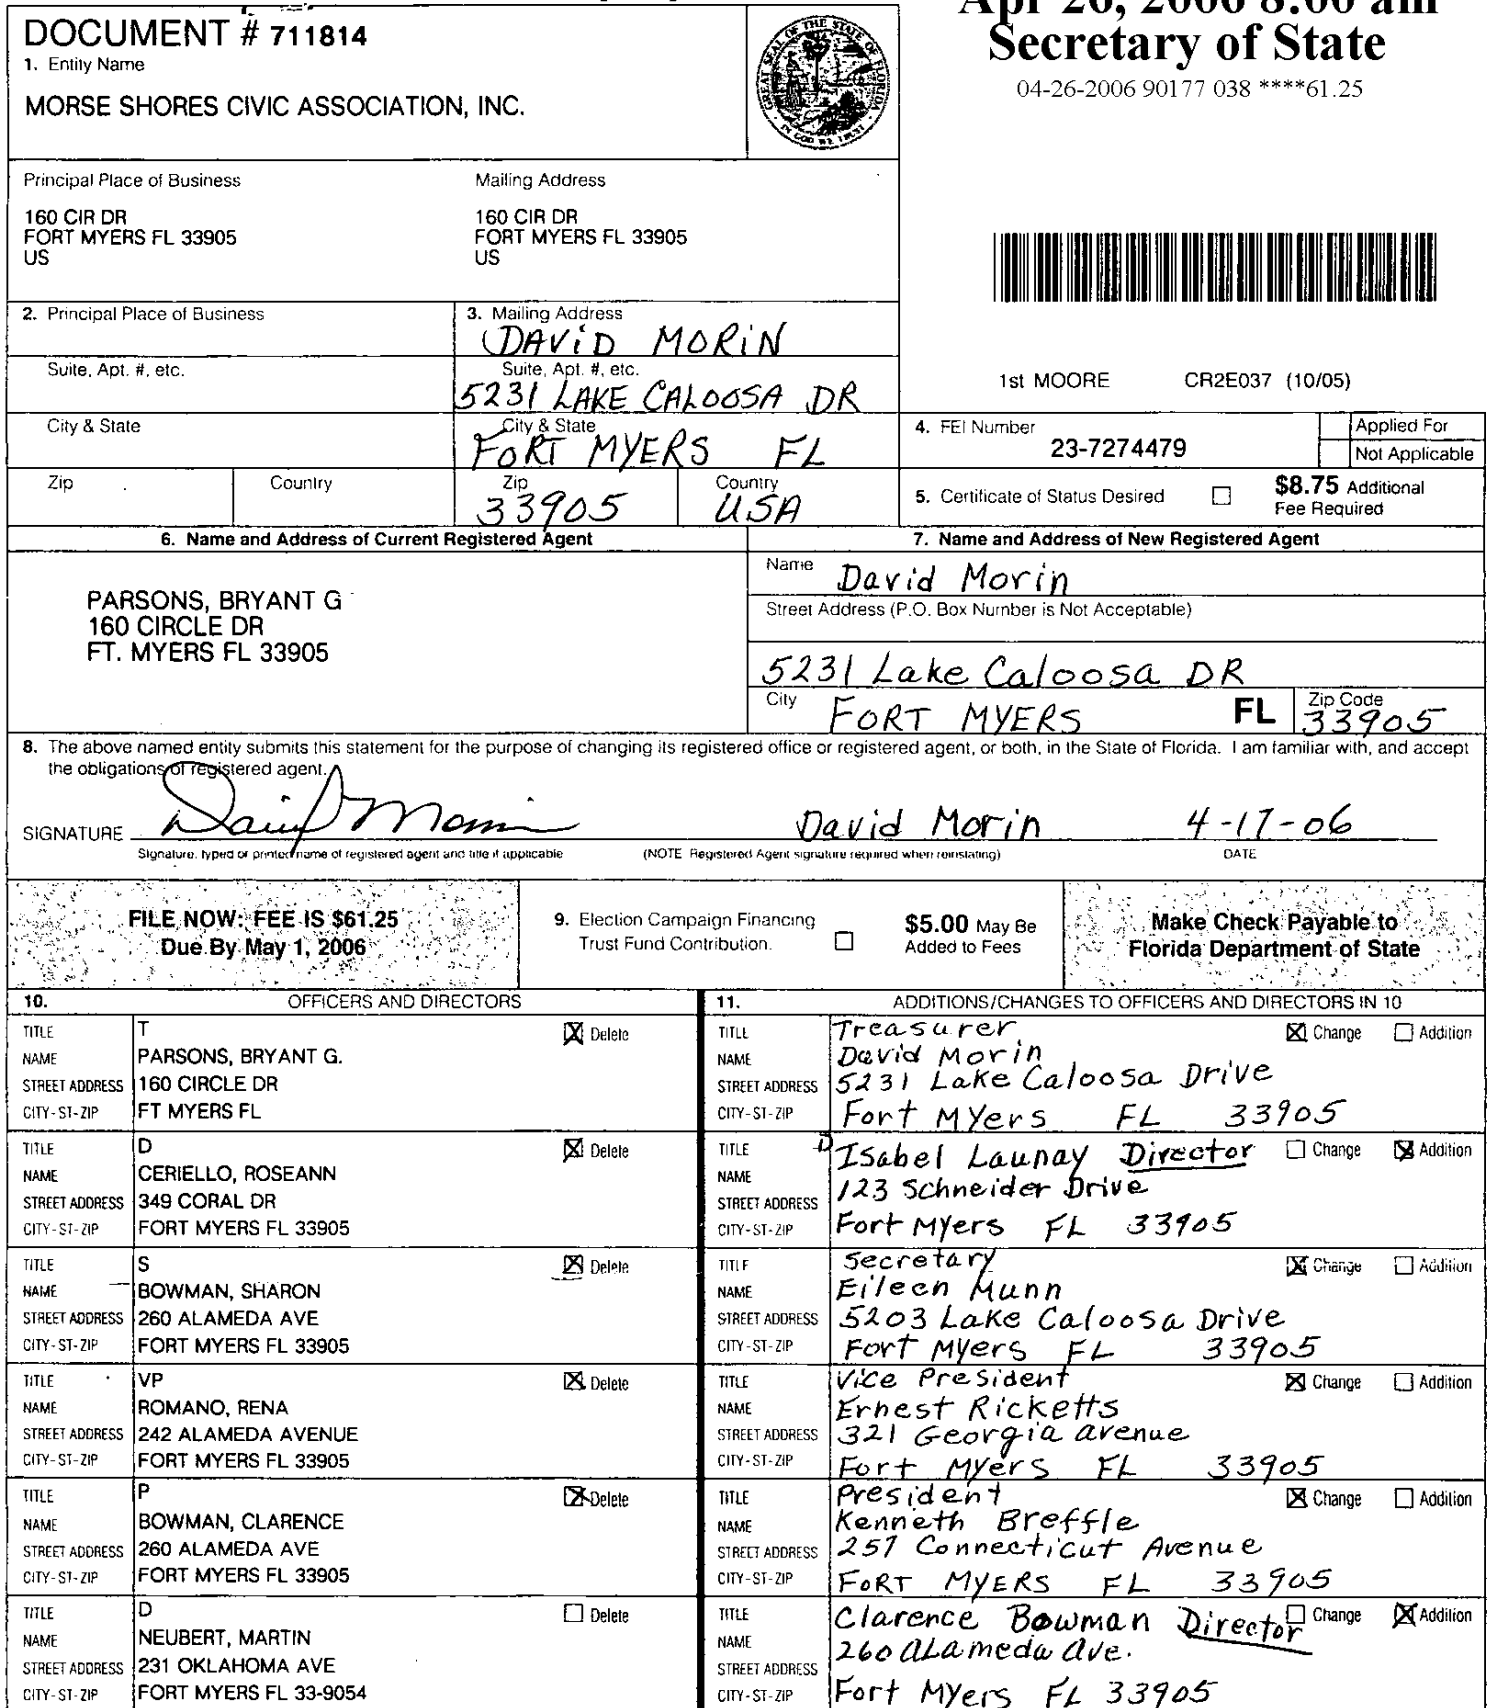 Apr 26, 2006 8:00 am
Secretary of State
04-26-2006 90177 038 ****61.25
DOCUMENT # 711814
1. Entity Name
MORSE SHORES CIVIC ASSOCIATION, INC.
GREAT SEAL OF THE STATE OF FLORIDA
IN GOD WE TRUST
Principal Place of Business
160 CIR DR
FORT MYERS FL 33905
US
Mailing Address
160 CIR DR
FORT MYERS FL 33905
US
2. Principal Place of Business
Suite, Apt. #, etc.
City & State
Zip
Country
3. Mailing Address
DAViD MORiN
Suite, Apt. #, etc.
5231 LAKE CALOOSA DR
City & State
FORT MYERS FL
Zip
33905
Country
USA
1st MOORE CR2E037 (10/05)
4. FEI Number
23-7274479
Applied For
Not Applicable
5. Certificate of Status Desired
$8.75 Additional
Fee Required
6. Name and Address of Current Registered Agent
PARSONS, BRYANT G
160 CIRCLE DR
FT. MYERS FL 33905
7. Name and Address of New Registered Agent
Name David Morin
Street Address (P.O. Box Number is Not Acceptable)
5231 Lake Caloosa DR
City FORT MYERS FL Zip Code 33905
8. The above named entity submits this statement for the purpose of changing its registered office or registered agent, or both, in the State of Florida. I am familiar with, and accept
the obligations of registered agent.
SIGNATURE David Morin David Morin 4-17-06
Signature, typed or printed name of registered agent and title if applicable (NOTE Registered Agent signature required when reinstating) DATE
FILE NOW: FEE IS $61.25
Due By May 1, 2006
9. Election Campaign Financing
Trust Fund Contribution.
$5.00 May Be
Added to Fees
Make Check Payable to
Florida Department of State
10. OFFICERS AND DIRECTORS
TITLE T X Delete
NAME PARSONS, BRYANT G.
STREET ADDRESS 160 CIRCLE DR
CITY-ST-ZIP FT MYERS FL
TITLE D X Delete
NAME CERIELLO, ROSEANN
STREET ADDRESS 349 CORAL DR
CITY-ST-ZIP FORT MYERS FL 33905
TITLE S X Delete
NAME BOWMAN, SHARON
STREET ADDRESS 260 ALAMEDA AVE
CITY-ST-ZIP FORT MYERS FL 33905
TITLE VP X Delete
NAME ROMANO, RENA
STREET ADDRESS 242 ALAMEDA AVENUE
CITY-ST-ZIP FORT MYERS FL 33905
TITLE P X Delete
NAME BOWMAN, CLARENCE
STREET ADDRESS 260 ALAMEDA AVE
CITY-ST-ZIP FORT MYERS FL 33905
TITLE D Delete
NAME NEUBERT, MARTIN
STREET ADDRESS 231 OKLAHOMA AVE
CITY-ST-ZIP FORT MYERS FL 33-9054
11. ADDITIONS/CHANGES TO OFFICERS AND DIRECTORS IN 10
TITLE Treasurer X Change Addition
NAME David Morin
STREET ADDRESS 5231 Lake Caloosa Drive
CITY-ST-ZIP Fort Myers FL 33905
TITLE D Isabel Launay Director Change X Addition
NAME
STREET ADDRESS 123 Schneider Drive
CITY-ST-ZIP Fort Myers FL 33905
TITLE Secretary X Change Addition
NAME Eileen Munn
STREET ADDRESS 5203 Lake Caloosa Drive
CITY-ST-ZIP Fort Myers FL 33905
TITLE Vice President X Change Addition
NAME Ernest Ricketts
STREET ADDRESS 321 Georgia avenue
CITY-ST-ZIP Fort Myers FL 33905
TITLE President X Change Addition
NAME Kenneth Breffle
STREET ADDRESS 257 Connecticut Avenue
CITY-ST-ZIP FORT MYERS FL 33905
TITLE Clarence Bowman Director Change X Addition
NAME 260 ALameda ave.
STREET ADDRESS
CITY-ST-ZIP Fort Myers FL 33905